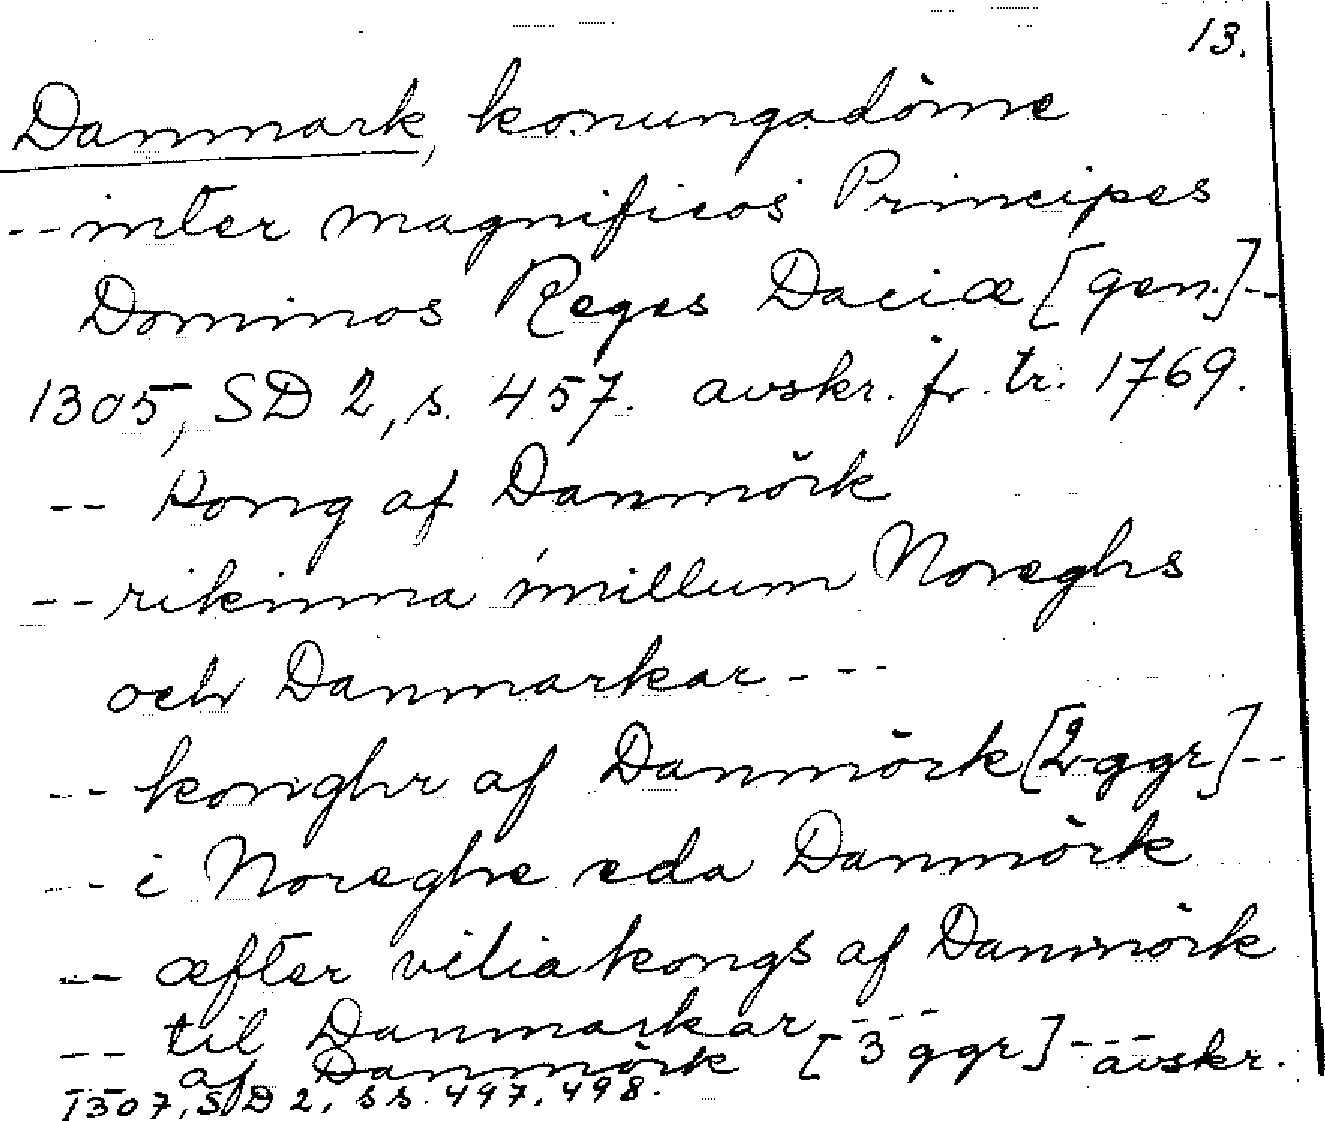 13.
Danmark, konungadöme
-- inter magnificos Principes
Dominos Reges Daciæ [gen.] --
1305, SD 2, s. 457. avskr. fr. tr. 1769.
-- Kong af Danmörk
-- rikinna imillum Noreghs
och Danmarkar ---
-- konghr af Danmörk [2 ggr] --
--- i Noreghe eda Danmörk
-- æfter vilia kongs af Danmörk
-- til Danmarkar ----
-- af Danmörk [3 ggr] --- avskr.
1307, SD 2, ss. 497, 498.